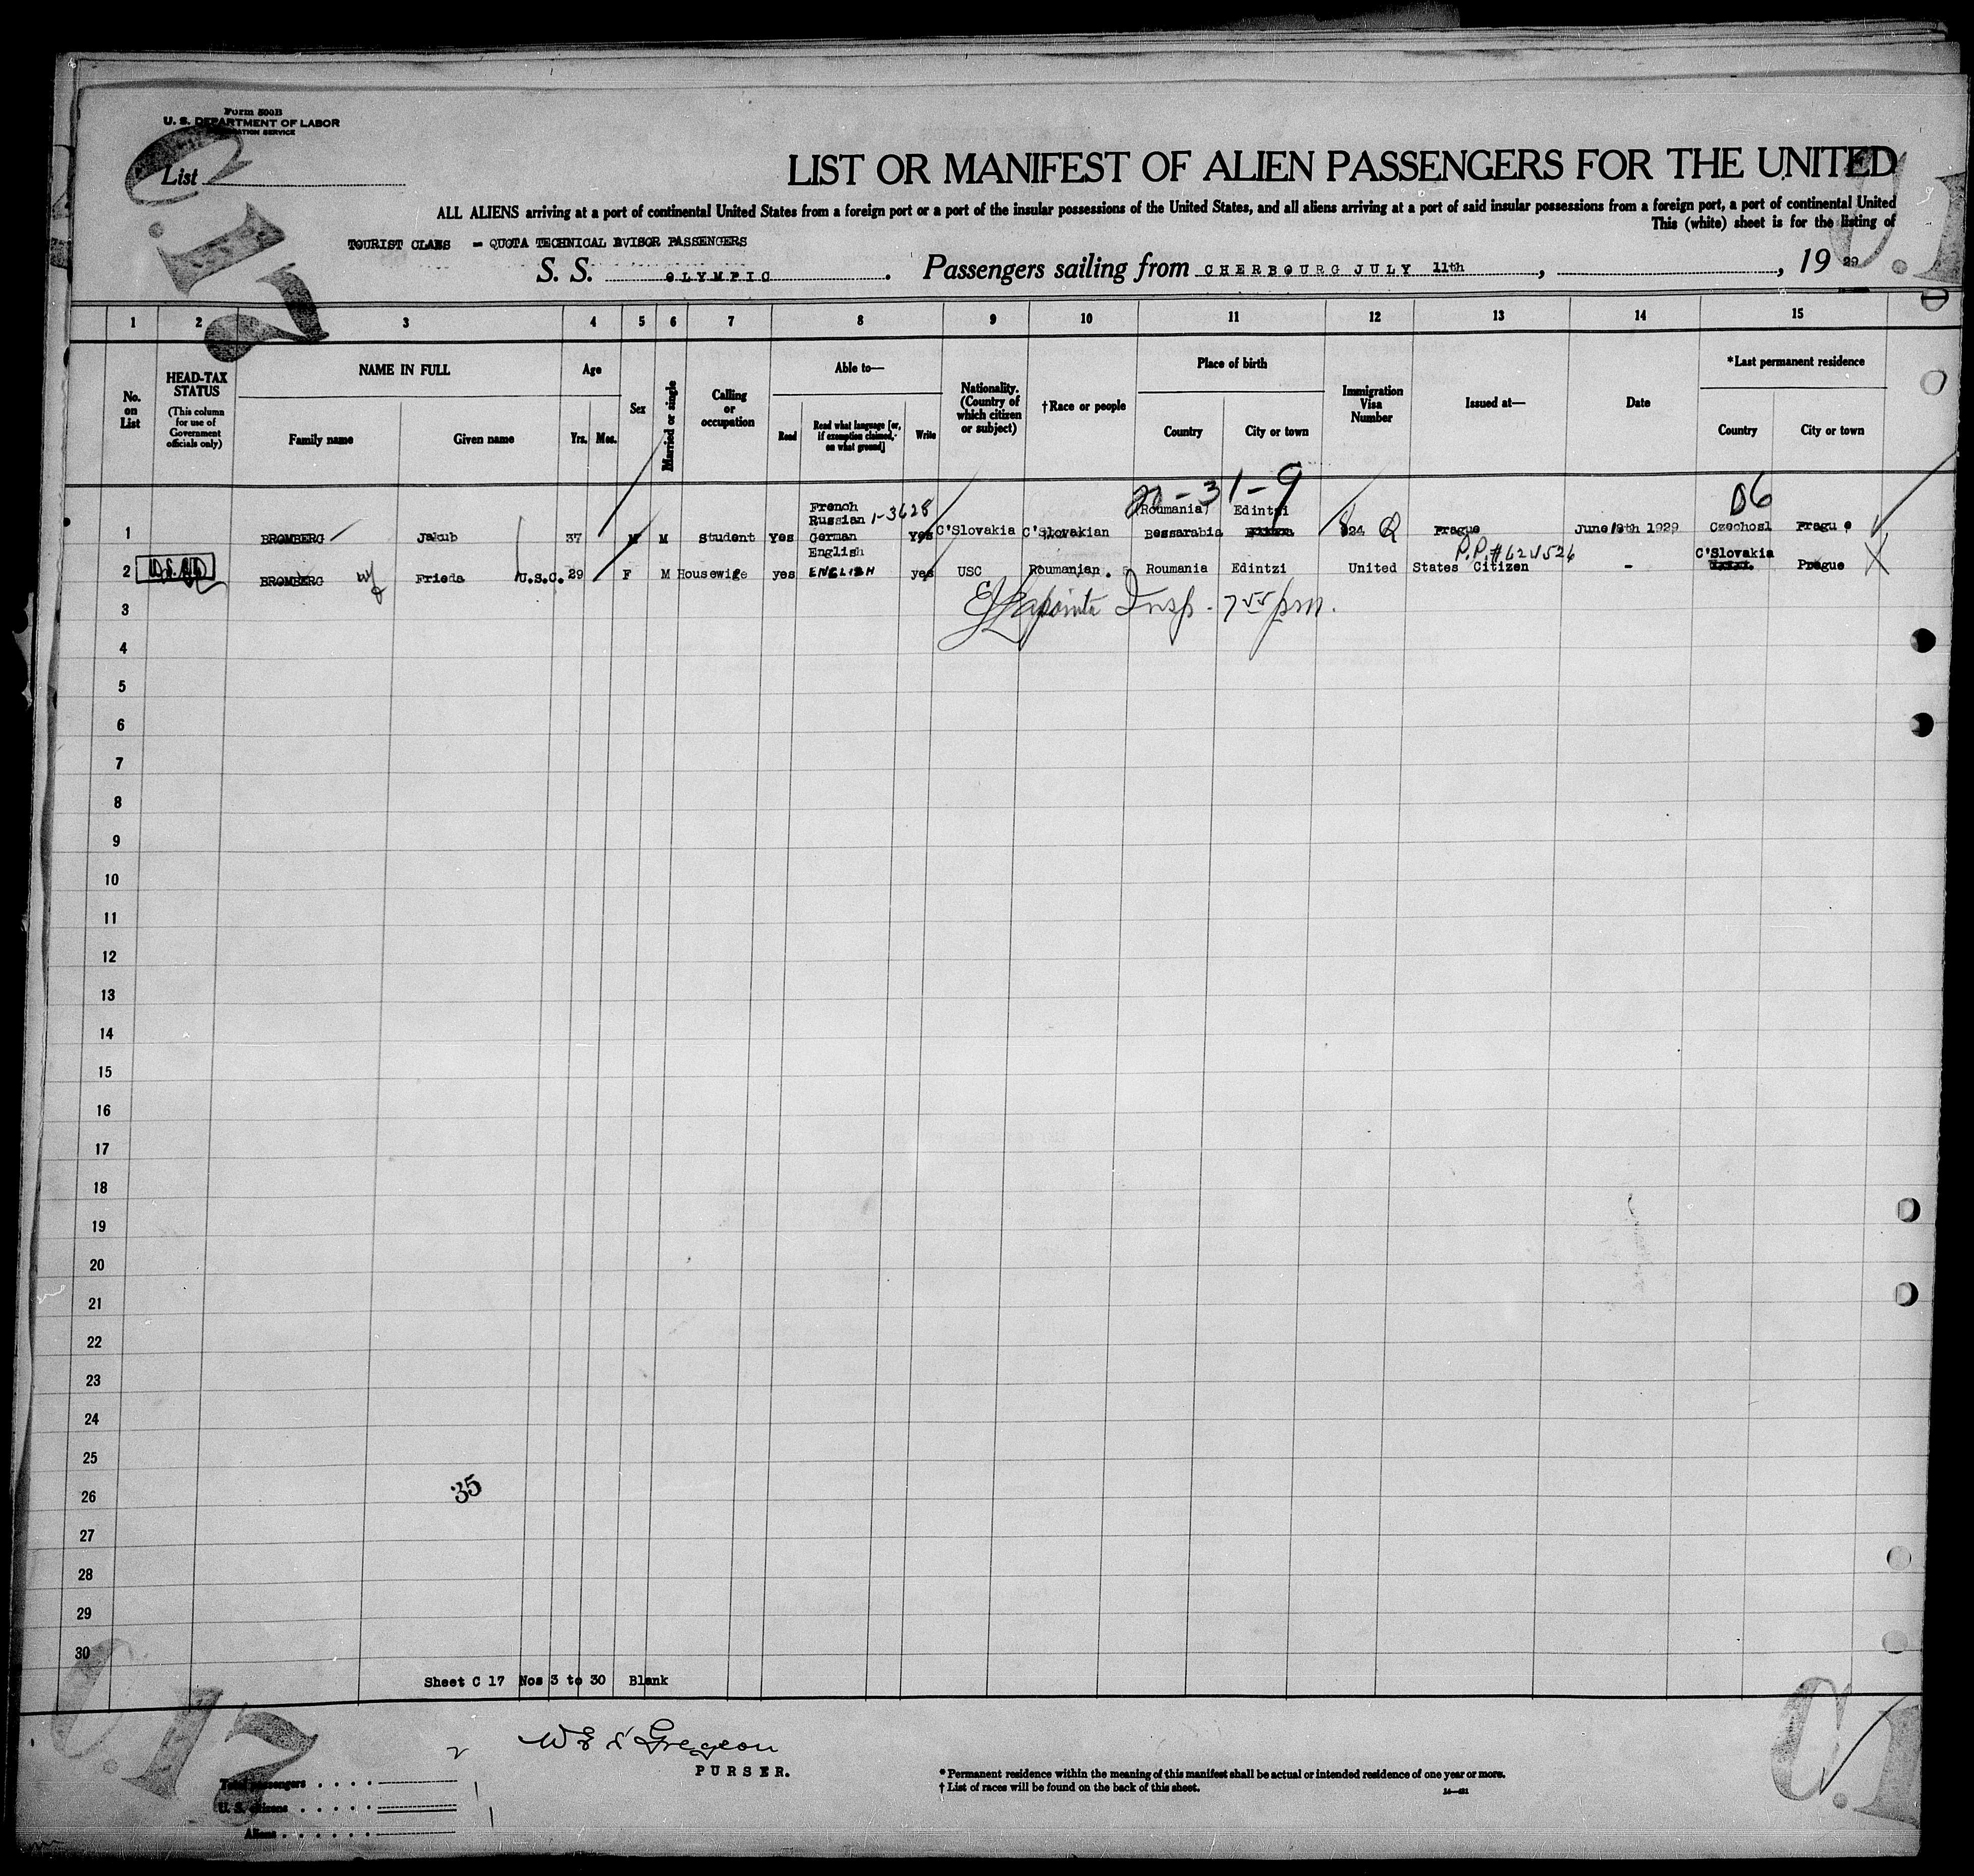 Form 500B
U. S. DEPARTMENT OF LABOR
IMMIGRATION SERVICE
List
C.17
LIST OR MANIFEST OF ALIEN PASSENGERS FOR THE UNITED
ALL ALIENS arriving at a port of continental United States from a foreign port or a port of the insular possessions of the United States, and all aliens arriving at a port of said insular possessions from a foreign port, a port of continental United
This (white) sheet is for the listing of
TOURIST CLASS - QUOTA TECHNICAL ADVISOR PASSENGERS
S. S. OLYMPIC . Passengers sailing from CHERBOURG JULY 11th , , 19 29 .
1 2 3 4 5 6 7 8 9 10 11 12 13 14 15
No. on List
HEAD-TAX STATUS (This column for use of Government officials only)
NAME IN FULL
Family name Given name
Age
Yrs. Mos.
Sex
Married or single
Calling or occupation
Able to—
Read Read what language [or, if exemption claimed, on what ground] Write
Nationality. (Country of which citizen or subject)
†Race or people
Place of birth
Country City or town
Immigration Visa Number
Issued at—
Date
*Last permanent residence
Country City or town
20-31-9 D6
French (Roumania) Edintzi
Russian 1-3628
1 BROMBERG Jakub 37 M M Student Yes German Yes C'Slovakia C'Slovakian Bessarabia 824 Q Prague June 19th 1929 Czechosl Prague
English P.P.#624526 C'Slovakia
2 BROMBERG wf Frieda U.S.C. 29 F M Housewife yes ENGLISH yes USC Roumanian. Roumania Edintzi United States Citizen - Prague
3 Insp. 7 55 pm.
4
5
6
7
8
9
10
11
12
13
14
15
16
17
18
19
20
21
22
23
24
25
26 35
27
28
29
30
Sheet C 17 Nos 3 to 30 Blank
C.17
PURSER.
Total passengers
U. S. citizens
Aliens
* Permanent residence within the meaning of this manifest shall be actual or intended residence of one year or more.
† List of races will be found on the back of this sheet.